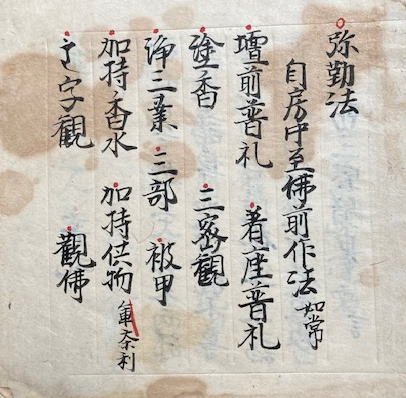 弥勒法
自房中至佛前作法 如常
壇前普礼 着座普礼
塗香 三密觀
浄三業 三部 被甲
加持香水 加持供物 軍荼利
字觀 觀佛